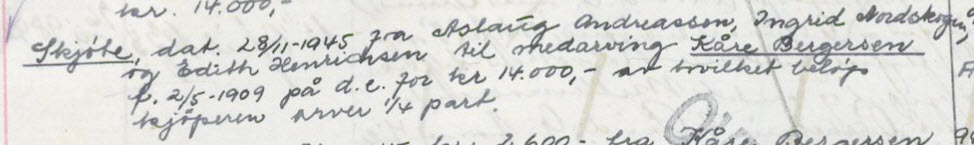 kr. 14.000,-
Skjöte, dat. 28/11-1945 fra Aslaug Andreassen, Ingrid Nordskogen,
og Edith Henrichsen til medarving Kåre Bergersen
f. 2/5-1909 på d.e. for kr 14.000,- av hvilket belöp
kjöperen arver 1/4 part.
600,- fra Kåre Bergersen